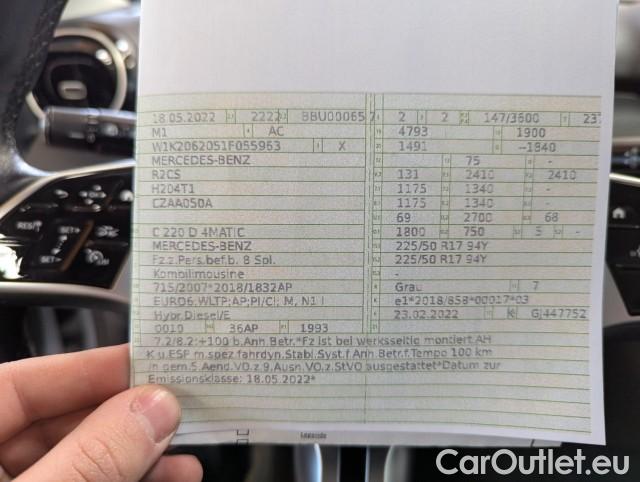 18.05.2022 2222 BBU00065 7 2 2 147/3600 237
M1 AC 4793 1900
W1K2062051F055963 X 1491 --1840
MERCEDES-BENZ 75 -
R2CS 131 2410 2410
H204T1 1175 1340 -
CZAA050A 1175 1340 -
69 2700 68
C 220 D 4MATIC 1800 750 5 -
MERCEDES-BENZ 225/50 R17 94Y
Fz.z.Pers.bef.b. 8 Spl. 225/50 R17 94Y
Kombilimousine -
715/2007*2018/1832AP Grau 7
EURO6;WLTP;AP;PI/CI; M, N1 I e1*2018/858*00017*03
Hybr.Diesel/E 23.02.2022 K GJ447752
0010 36AP 1993
7.2/8.2:+100 b.Anh.Betr.*Fz ist bei werksseitig montiert.AH
K u.ESF m.spez.fahrdyn.Stabi.Syst.f.Anh.Betr.f.Tempo 100 km
/h gem.5.Aend.VO.z.9.Ausn.VO.z.StVO ausgestattet*Datum zur
Emissionsklasse: 18.05.2022*
RES
SET+
SET-
CarOutlet.eu